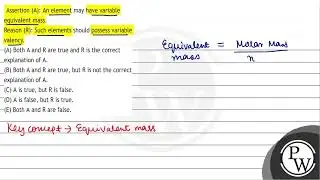 Assertion (A): An element may have variable
equivalent mass.
Reason (R): Such elements should possess variable
valency.
(A) Both A and R are true and R is the correct
explanation of A.
(B) Both A and R are true, but R is not the correct
explanation of A.
(C) A is true, but R is false.
(D) A is false, but R is true.
(E) Both A and R are false.
Equivalent mass = Molar Mass / n
Key concept → Equivalent mass
PW